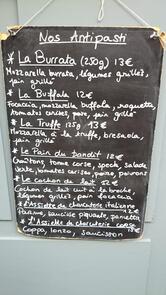 Nos Antipasti
* La Burrata (250g) 13€
Mozzarella burrata, légumes grillés,
pain grillé
* La Buffala 12€
Focaccia, mozzarella buffala, roquette
tomates cerises, pain grillé
* La Truffe 13€
Mozzarella à la truffe, bresaola,
pain grillé
* Le Pain du bandit 12€
Croûtons, tome corse, speck, salade
verte, tomates cerises, poivrons
* Le cochon de lait 12€
Cochon de lait cuit à la broche,
légumes grillés, pain focaccia
* L'Assiette de charcuterie italienne
saucisse piquante, pancetta
* L'Assiette de charcuterie corse
Coppa, lonzo, saucisson